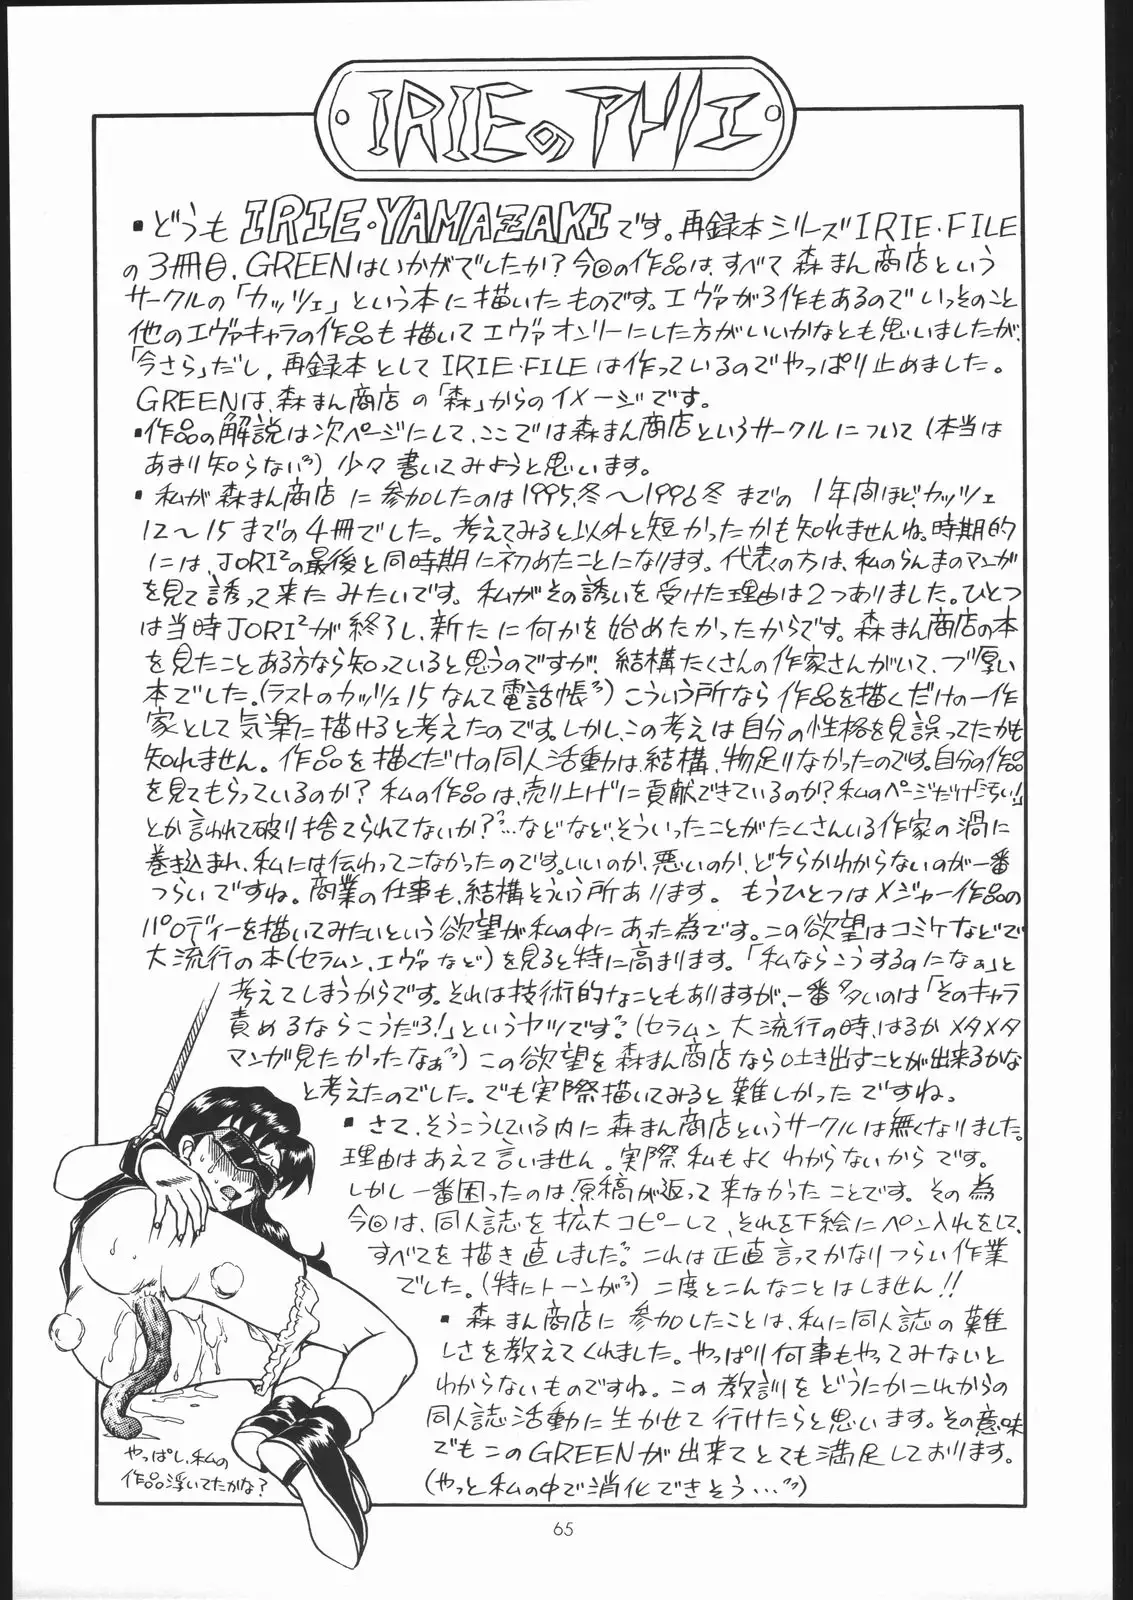 IRIEのアトリエ
・どうもIRIE・YAMAZAKIです。再録本シリーズIRIE・FILE
の3冊目、GREENはいかがでしたか?今回の作品は、すべて森まん商店という
サークルの「カッツェ」という本に描いたものです。エヴァが3作もあるのでいっそのこと
他のエヴァキャラの作品も描いてエヴァオンリーにした方がいいかなとも思いましたが、
「今さら」だし、再録本としてIRIE・FILEは作っているのでやっぱり止めました。
GREENは、森まん商店の「森」からのイメージです。
・作品の解説は次ページにして、ここでは森まん商店というサークルについて(本当は
あまり知らない)少々書いてみようと思います。
・私が森まん商店に参加したのは1995,冬〜1996冬までの1年間ほど、カッツェ
12〜15までの4冊でした。考えてみると以外と短かったかも知れませんね。時期的
には、JORI²の最後と同時期に初めたことになります。代表の方は、私のらんまのマンガ
を見て誘って来たみたいです。私がその誘いを受けた理由は2つありました。ひとつ
は当時JORI²が終了し、新たに何かを始めたかったからです。森まん商店の本
を見たことある方なら知っていると思うのですが、結構たくさんの作家さんがいて、ブ厚い
本でした。(ラストのカッツェ15なんて電話帳)こういう所なら作品を描くだけの一作
家として気楽に描けると考えたのです。しかし、この考えは自分の性格を見誤ってたかも
知れません。作品を描くだけの同人活動は、結構、物足りなかったのです。自分の作品
を見てもらっているのか?私の作品は、売り上げに貢献できているのか?私のページだけ「汚い!」
とか言われて破り捨てられてないか?…などなど、そういったことがたくさんいる作家の渦に
巻き込まれ、私には伝わってこなかったのです。いいのか、悪いのか、どちらかわからないのが一番
つらいですね。商業の仕事も、結構そういう所あります。もうひとつはメジャー作品の
パロディーを描いてみたいという欲望が私の中にあった為です。この欲望はコミケなどで
大流行の本(セラムン、エヴァなど)を見ると特に高まります。「私ならこうするのになぁ」と
考えてしまうからです。それは技術的なこともありますが、一番多いのは「そのキャラ
責めるならこうだろ!」というヤツです。(セラムン大流行の時、はるかメタメタ
マンガ見たかったなぁ)この欲望を森まん商店なら吐き出すことが出来るかな
と考えたのでした。でも実際描いてみると難しかったですね。
・さて、そうこうしている内に森まん商店というサークルは無くなりました。
理由はあえて言いません。実際私もよくわからないからです。
しかし一番困ったのは、原稿が返って来なかったことです。その為
今回は、同人誌を拡大コピーして、それを下絵にペン入れをして、
すべてを描き直しました。これは正直言ってかなりつらい作業
でした。(特にトーンが)二度とこんなことはしません!!
・森まん商店に参加したことは、私に同人誌の難
しさを教えてくれました。やっぱり何事もやってみないと
わからないものですね。この教訓をどうにかこれからの
同人誌活動に生かせて行けたらと思います。その意味
でもこのGREENが出来てとても満足しております。
(やっと私の中で消化できそう…)
やっぱし、私の
作品浮いてたかな?
65